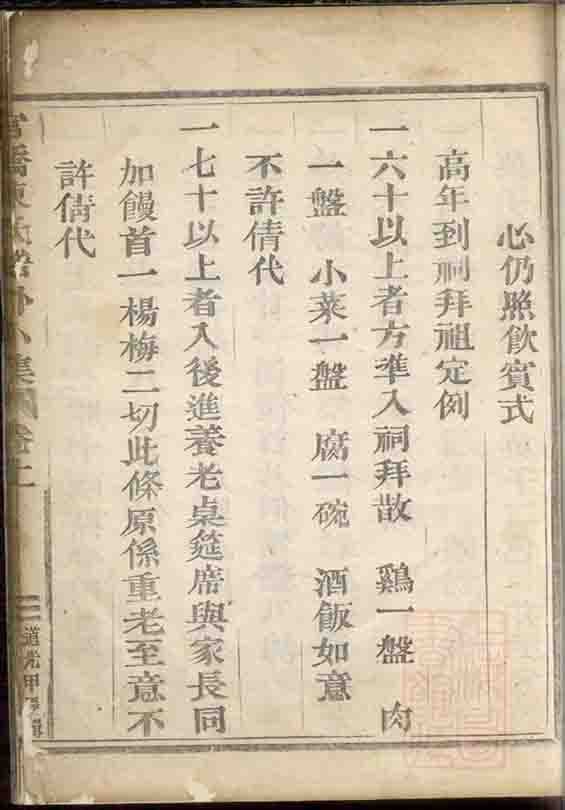 心仍照飲賓式
高年到祠拜祖定例
一六十以上者方準入祠拜散 鷄一盤 肉
一盤 小菜一盤 腐一碗 酒飯如意
不許倩代
一七十以上者入後進養老桌筵席與家長同
加饅首一楊梅二切此條原係重老至意不
許倩代
集 卷上
道光甲